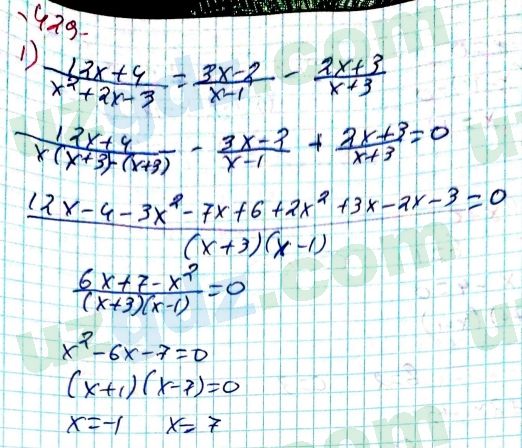 429.
1) (12x+4)/(x²+2x-3) = (3x-2)/(x-1) - (2x+3)/(x+3)
(12x+4)/(x(x+3)-(x+3)) - (3x-2)/(x-1) + (2x+3)/(x+3) = 0
(12x-4-3x²-7x+6+2x²+3x-2x-3)/((x+3)(x-1)) = 0
(6x+7-x²)/((x+3)(x-1)) = 0
x²-6x-7=0
(x+1)(x-7)=0
x=-1 x=7